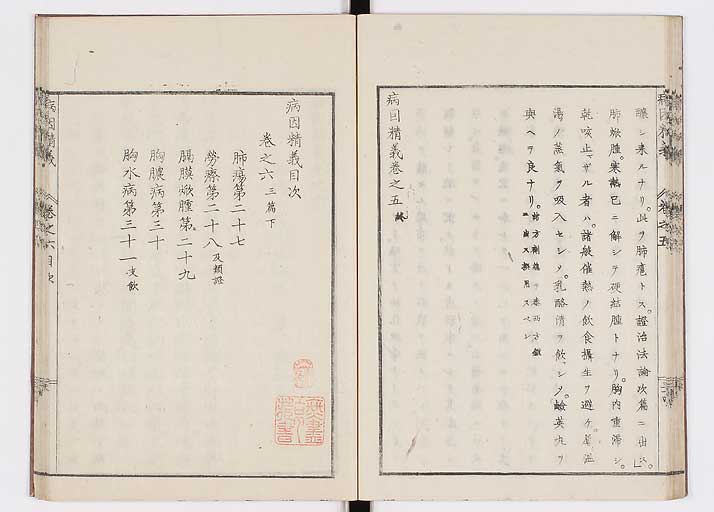 醸シ来ルナリ。此ヲ肺瘡トス。證治法論次篇ニ出ス。
肺焮腫。寒熱已ニ解シテ硬結腫トナリ。胸内重滞シ。
乾咳止ザル者ハ。諸般催熱ノ飲食攝生ヲ避ケ。
湯ノ蒸氣ヲ吸入セシメ。乳酪清ヲ飲シメ。
與ヘテ良ナリ。
病因精義巻之五 終
病因精義
巻之五
病因精義目次
巻之六 三篇下
肺瘍第二十七
勞瘵第二十八 及類證
膈膜焮腫第二十九
胸膿病第三十
胸水病第三十一 支飲
病因精義
巻之六目次